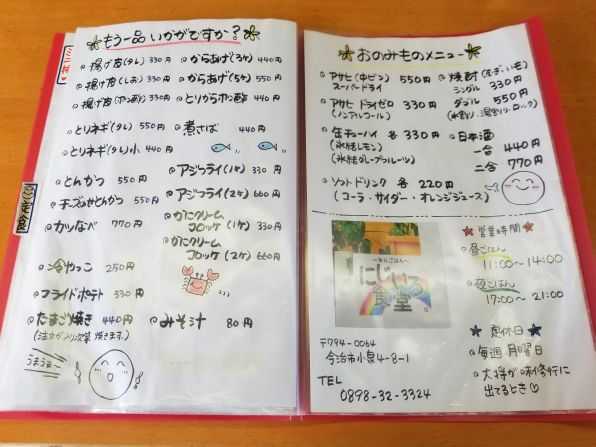 もう一品いかがですか?
揚げ皮(タレ) 330円
揚げ皮(しお) 330円
揚げ皮(ポン酢) 330円
とりネギ(タレ) 550円
とりネギ(タレ)小 440円
とんかつ 550円
チーズのせとんかつ 550円
カツなべ 770円
冷やっこ 250円
フライドポテト 330円
たまご焼き 440円
(注文が入り次第 焼きます。)
うまうま〜
からあげ(3ケ) 330円
からあげ(5ケ) 550円
とりからポン酢 440円
煮さば 440円
アジフライ(1ケ) 330円
アジフライ(2ケ) 660円
かにクリーム
コロッケ(1ケ) 330円
かにクリーム
コロッケ(2ケ) 660円
みそ汁 80円
おのみものメニュー
アサヒ(中ビン) 550円
スーパードライ
アサヒ ドライゼロ 330円
(ノンアルコール)
缶チューハイ 各 330円
(氷結レモン)
(氷結グレープフルーツ)
ソフトドリンク 各 220円
(コーラ・サイダー・オレンジジュース)
焼酎(むぎ・いも)
シングル 330円
ダブル 550円
(水割り・湯割り・ロック)
日本酒
一合 440円
二合 770円
にじいろ
食堂
〒794-0064
今治市小泉4-8-1
TEL
0898-32-3324
営業時間
昼ごはん
11:00〜14:00
夜ごはん
17:00〜21:00
定休日
毎週月曜日
大将が味修行に
出てるとき